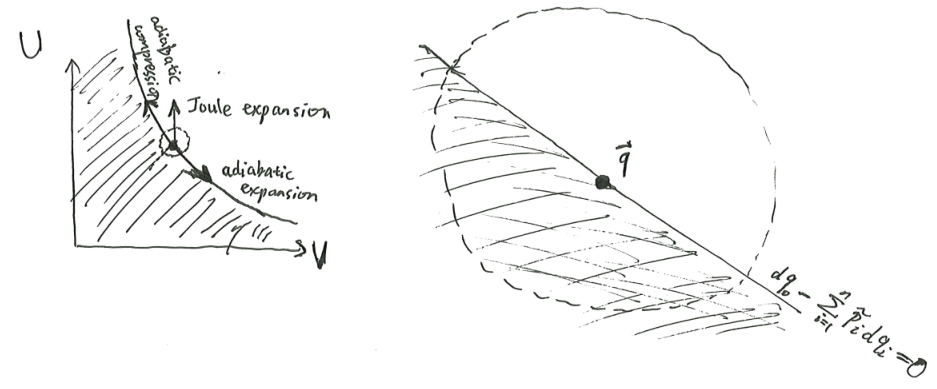 U
adiabatic
compression
Joule expansion
adiabatic
expansion
V
\vec{q}
dq_0 - \sum_{i=1}^{n} \tilde{p}_i dq_i = 0